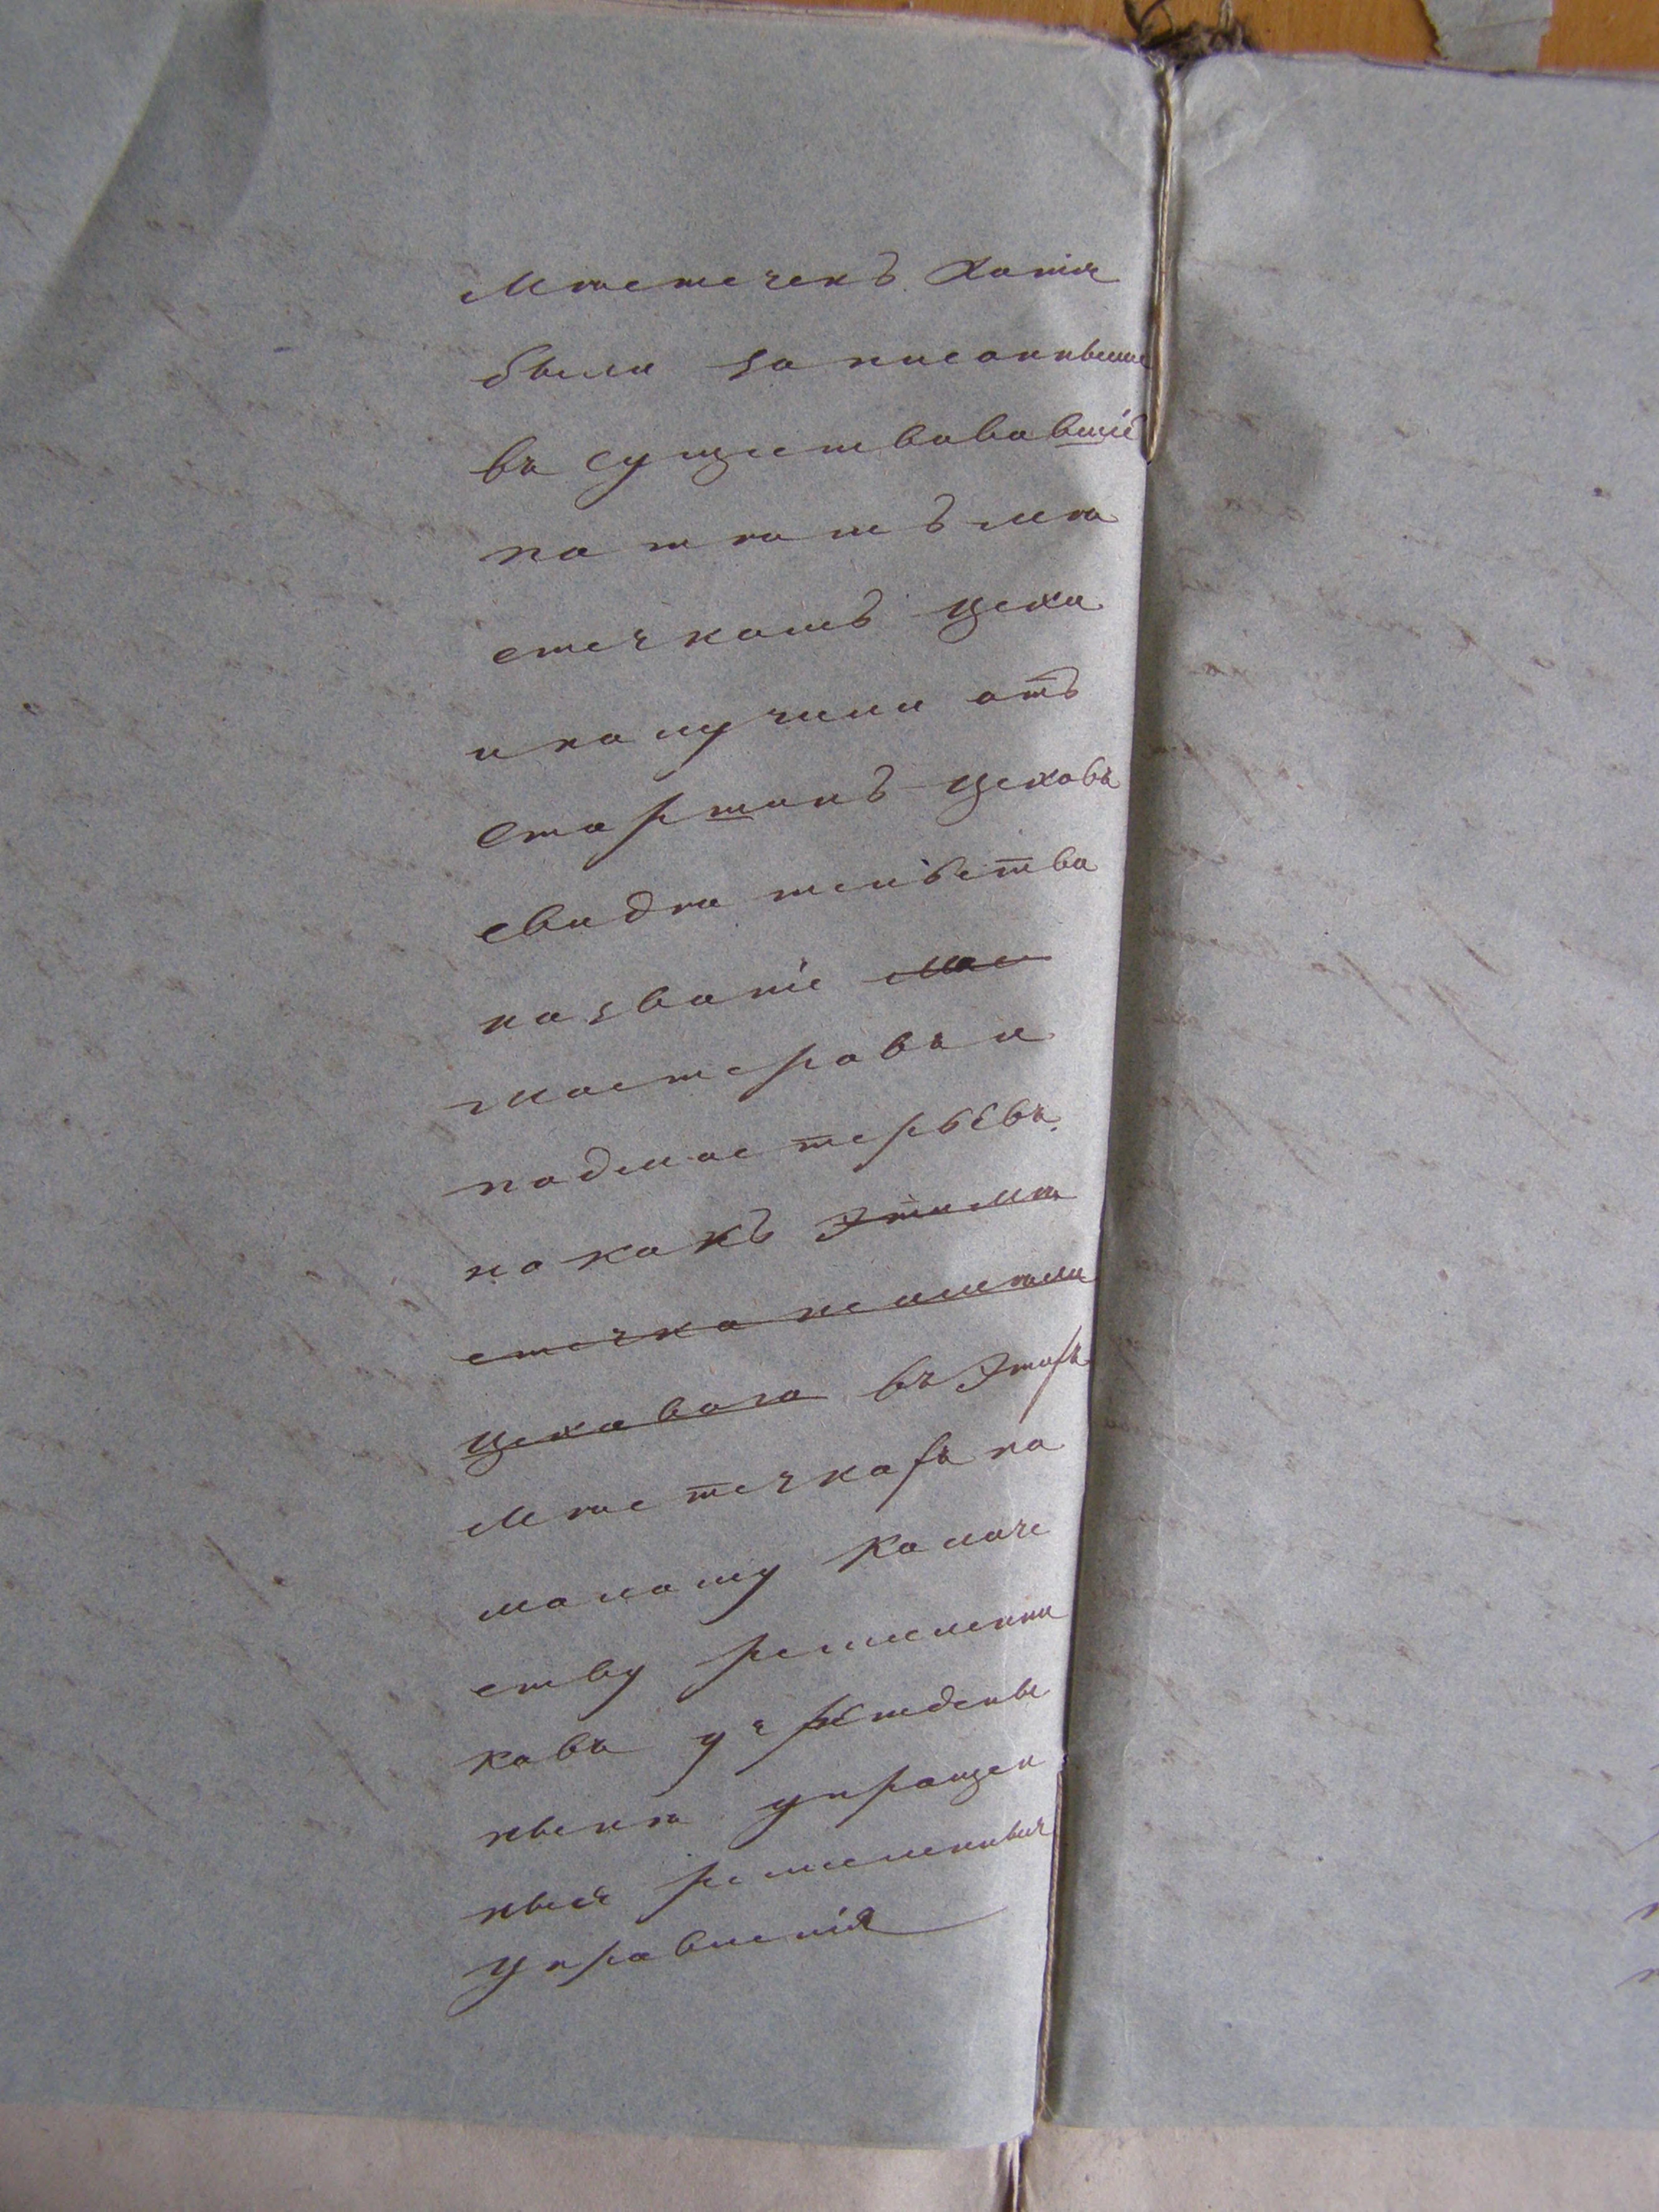 Мѣстечекъ хотя
были записанные
въ существовавшіе
по тѣмъ мѣ
стечкамъ цехи
и получили отъ
старшинъ цеховъ
свидѣтельства
на званіе мас
мастеровъ и
подмастерьевъ.
но какъ эти мѣ
стечка не имѣли
цеховаго въ этихъ
мѣстечкахъ по
малому количе
ству ремеслени
ковъ учрежденъ
ныенѣ упрощен
ныя ремесленныя
управленія